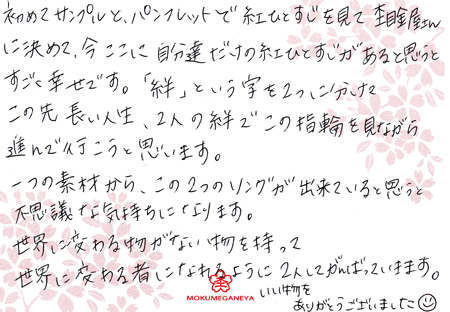 初めてサンプルと、パンフレットで紅ひとすじを見て杢目金屋さん
に決めて、今ここに自分達だけの紅ひとすじがあると思うと
すごく幸せです。「絆」という字を2つに分けて
この先長い人生、2人の絆でこの指輪を見ながら
進んで行こうと思います。
一つの素材から、この2つのリングが出来ていると思うと
不思議な気持ちになります。
世界に変わる物がない物を持って
世界に変わる者になれるように2人してがんばっていきます。
いい物を
ありがとうございました
MOKUMEGANEYA